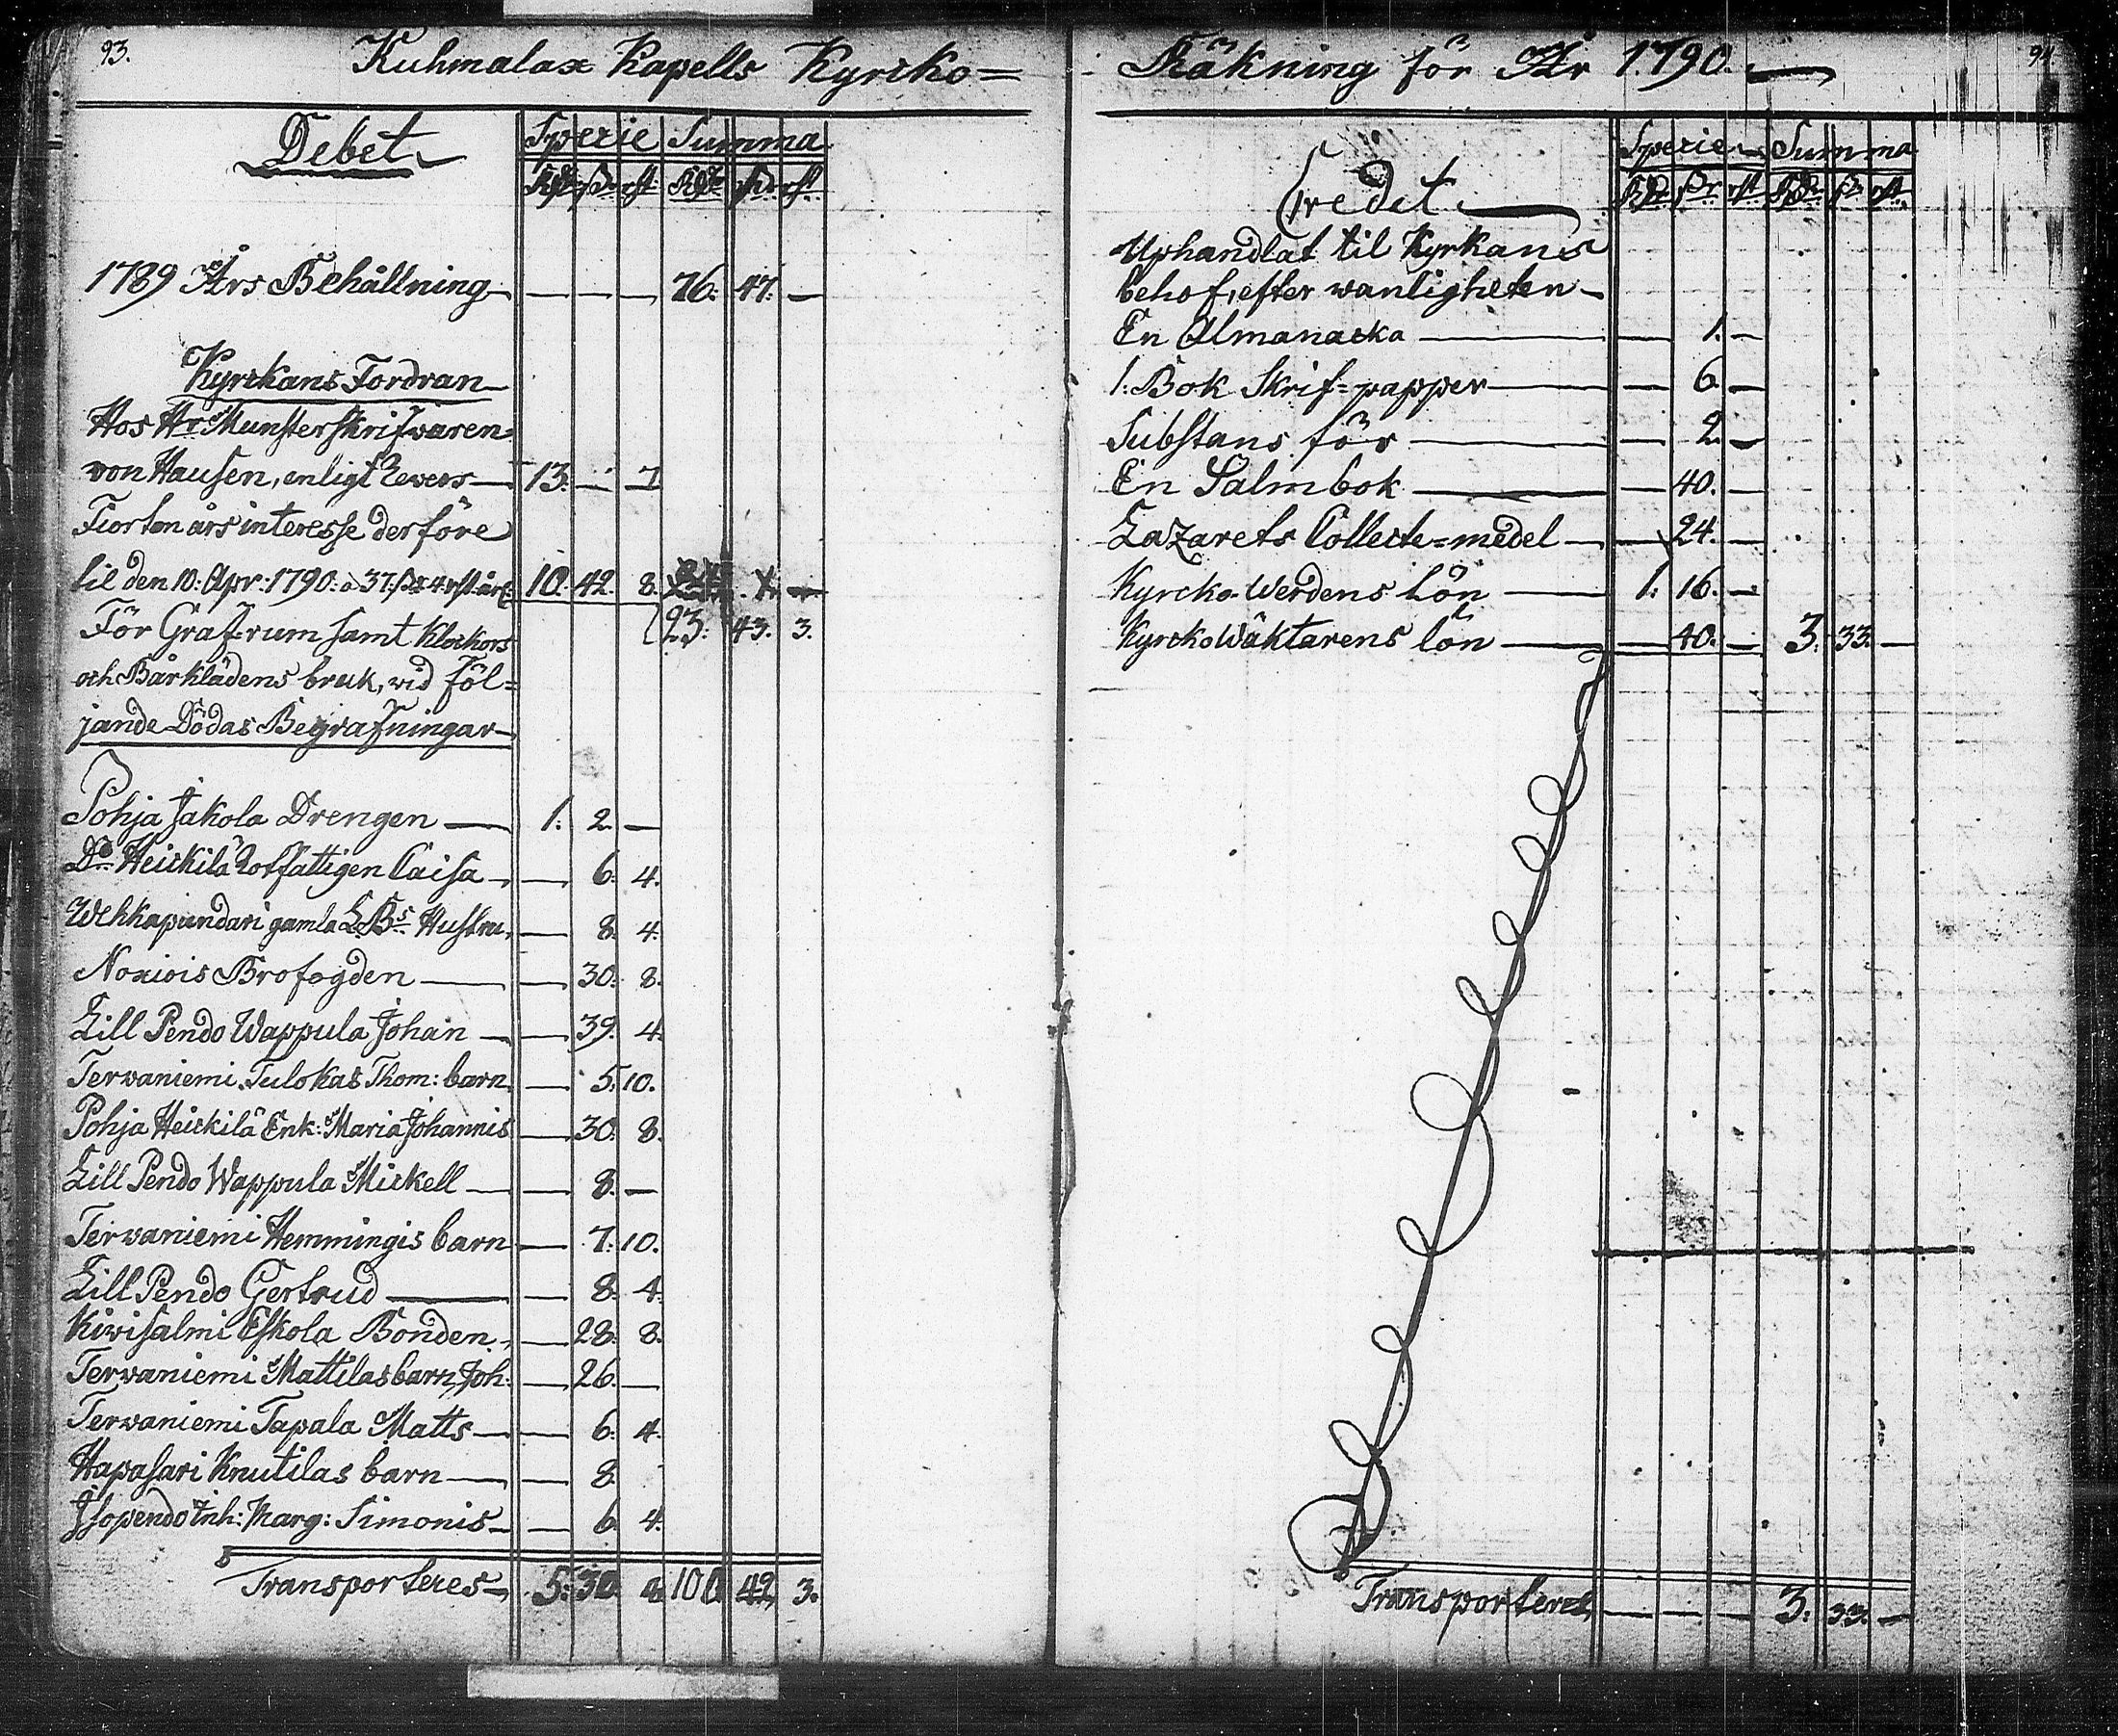 93.
Kuhmalax Kapells Kyrcko=
Debet
Specie Summa
Rdr ßr rst. Rdr ßr rst.
1789 Års Behållning — — — 76: 47. —
Kyrckans Fordran
Hos Hr Munsterskrifvaren
von Hausen, enligt Revers — 13. — 7
Fiorton års interesse derföre
til den 10: Apr: 1790: a 37. ßr 4 rst årl: 10. 42. 8.
23: 43. 3.
För Grafrum samt Klockors
och Bårklädens bruk, vid Föl=
jande Dödas Begrafningar
Pohja Jakola Drengen — 1. 2. —
Do Heickilä Rotfattigen Caisa — — 6. 4.
Wehkapundari gamla LBs Hustru, — 8. 4.
Noxiois Brofogden — — 30. 8.
Lill Pendo Wappula Johan — — 39. 4.
Tervaniemi Tulokas Thom: barn — 5. 10.
Pohja Heickilä Enk: Maria Johannis — 30. 8.
Lill Pendo Wappula Mickell — — 8. —
Tervaniemi Hemmingis barn — 7. 10.
Lill Pendo Gertrud — — 8. 4.
Kivisalmi Eskola Bonden — — 28. 8.
Tervaniemi Mattilas barn Joh: — 26. —
Tervaniemi Tapala Matts — — 6. 4.
Hapasari Knutilas barn — — 8.
Isopendo Inh: Marg: Simonis — — 6. 4.
Transporteres — 5. 30. 100. 42. 3.
94
Räkning för År 1790. —
Credet
Specie Summa
Rdr ßr rst Rdr ßr rst.
Uphandlat til Kyrkans
behof, efter wanligheten —
En Almanacka — — 1. —
1. Bok Skrif=papper — — 6. —
Substans för — — 2. —
En Salmbok — — 40. —
Lazarets Collecte=medel — — 24. —
Kyrcko Werdens Lön — 1: 16. —
Kyrcko Wäktarens lön — — 40. — 3. 33. —
Transporteres — — — 3. 33. —